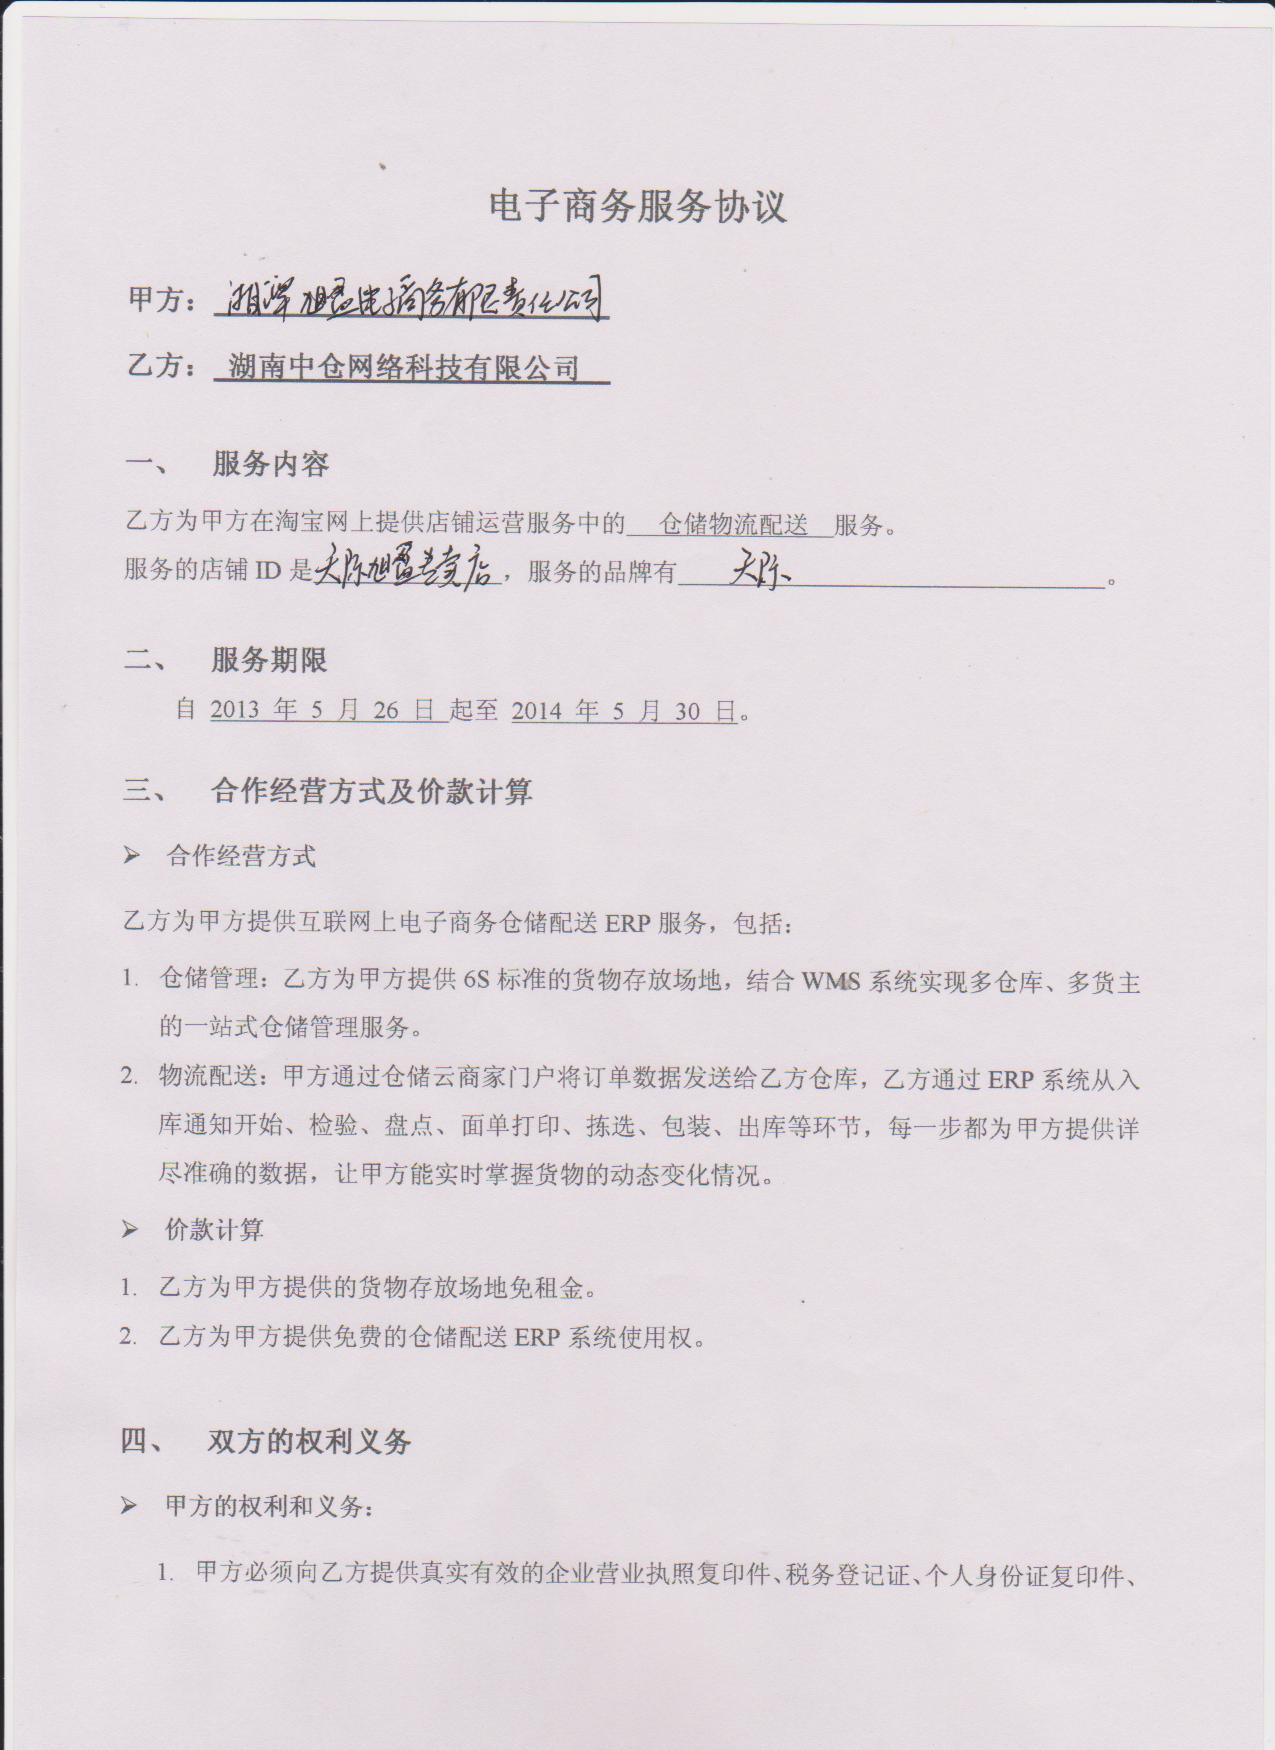 电子商务服务协议
甲方：湘潭旭盈电子商务有限责任公司
乙方：湖南中仓网络科技有限公司
一、 服务内容
乙方为甲方在淘宝网上提供店铺运营服务中的 仓储物流配送 服务。
服务的店铺 ID 是天际旭盈专卖店，服务的品牌有 天际 。
二、 服务期限
自 2013 年 5 月 26 日 起至 2014 年 5 月 30 日。
三、 合作经营方式及价款计算
➢ 合作经营方式
乙方为甲方提供互联网上电子商务仓储配送 ERP 服务，包括：
1. 仓储管理：乙方为甲方提供 6S 标准的货物存放场地，结合 WMS 系统实现多仓库、多货主
的一站式仓储管理服务。
2. 物流配送：甲方通过仓储云商家门户将订单数据发送给乙方仓库，乙方通过 ERP 系统从入
库通知开始、检验、盘点、面单打印、拣选、包装、出库等环节，每一步都为甲方提供详
尽准确的数据，让甲方能实时掌握货物的动态变化情况。
➢ 价款计算
1. 乙方为甲方提供的货物存放场地免租金。
2. 乙方为甲方提供免费的仓储配送 ERP 系统使用权。
四、 双方的权利义务
➢ 甲方的权利和义务：
1. 甲方必须向乙方提供真实有效的企业营业执照复印件、税务登记证、个人身份证复印件、